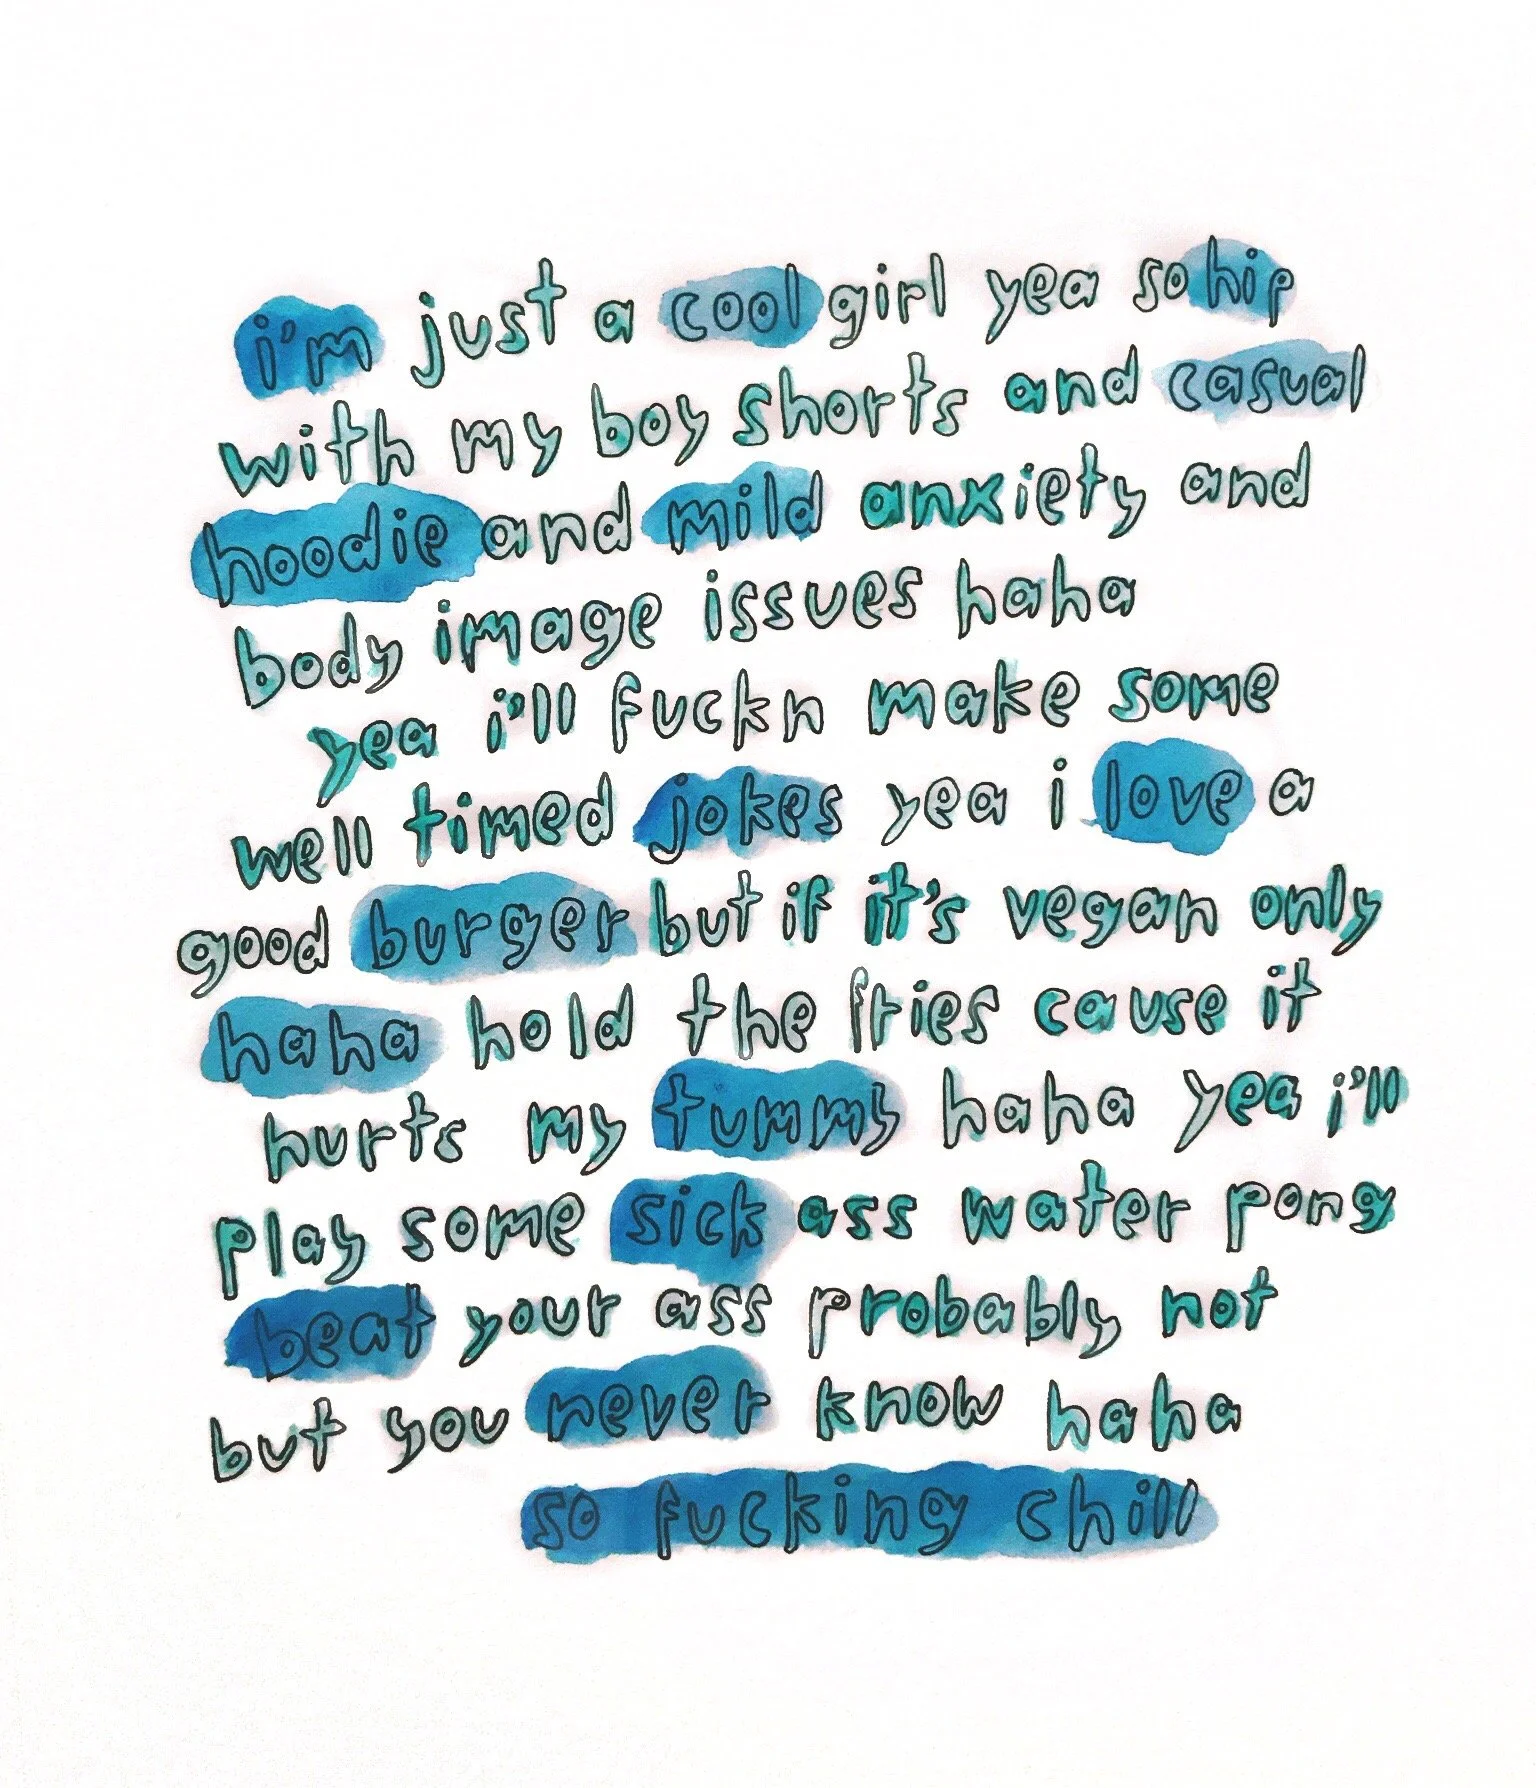 i'm just a cool girl yea so hip
with my boy shorts and casual
hoodie and mild anxiety and
body image issues haha
yea i'll fuckn make some
well timed jokes yea i love a
good burger but if it's vegan only
haha hold the fries cause it
hurts my tummy haha yea i'll
play some sick ass water pong
beat your ass probably not
but you never know haha
so fucking chill